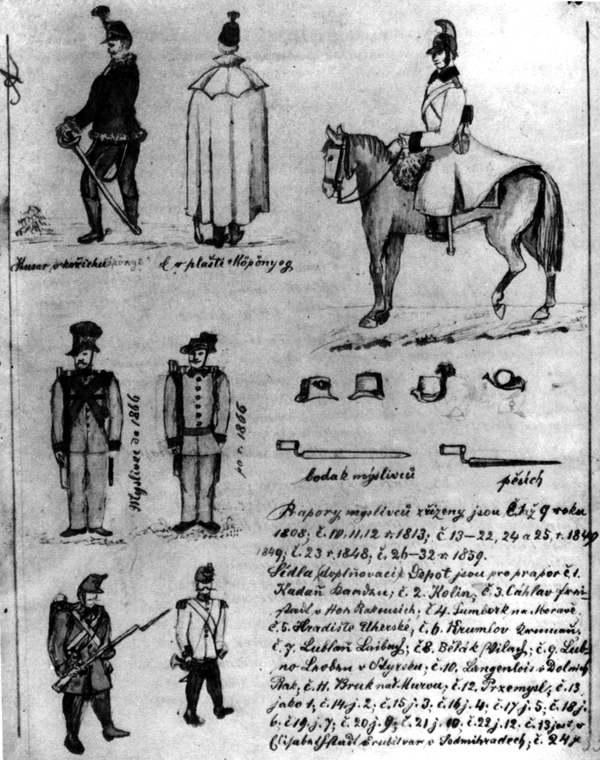 Husar v kožichu
C v plášti Köpönyeg
Myslivec do 1866
po r. 1866
bodák myslivců
pěších
Prapory myslivců zřízeny jsou Č. 1-ž 9 roku
1808; č. 10, 11, 12 r. 1813; č. 13–22, 24 a 25, r. 1849
1849; č. 23 r. 1848; č. 26–32 r. 1859.
Sídla (doplňovací) Depot jsou pro prapor č. 1.
Kadaň; č. 2. Kolín, č. 3. Čáhlav
v Hor. Rakousích, č. 4. Šumberk na Moravě,
č. 5. Hradiště Uherské, č. 6. Krumlov
č. 7. Lublaň Laibach; č. 8. Bělák (Vilach); č. 9. Lub-
no Leoben v Štyrsku; č. 10. Langenlois v Dolních
Rak., č. 11. Bruk nad Murou; č. 12. Przemysl, č. 13
jako 1, č. 14 j. 2; č. 15 j. 3; č. 16 j. 4; č. 17 j. 5; č. 18 j.
6. č. 19. j. 7; č. 20 j. 9; č. 21 j. 10, č. 22 j. 12. č.
Elisabethstadt v Sedmihradech; č. 24 j